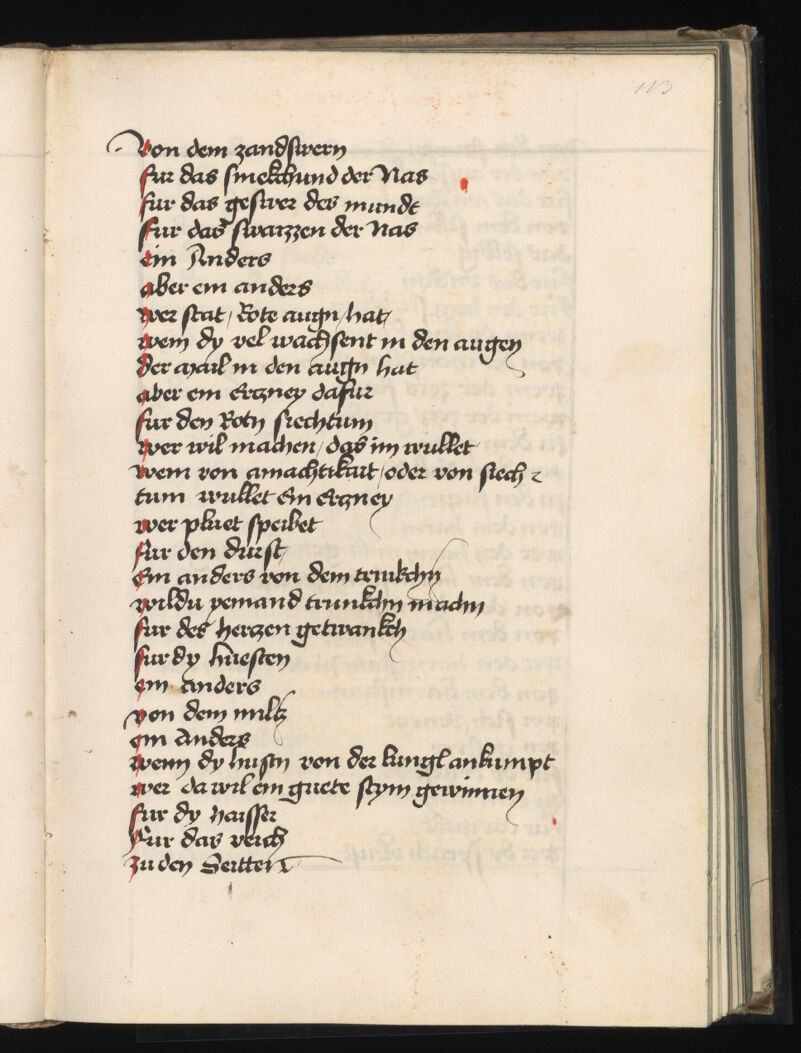 113
Von dem zandswern
fur das smekchund der Nas
fur das geswer des mundt
fur das swarzzen der Nas
ein Anders
aber ein anders
wer stat / Rote augn / hat
wem dy vel wachsent in den augen
der mail in den augn hat
aber ein Erczney dafur
fur den Rotn siechtum
wer wil machen / das im wullet
wem von amachtikait / oder von siech
tum wullet Ein erczney
wer pluet speibet
fur den durst
Ein anders von dem trinkchn
wildu yemand trunkchn machn
fur des herczen getwankch
fur dy huesten
ein anders
von dem milcz
ein Anders
wenn dy husten von der lungl ankumpt
wer da wil ein guete stym gewinnen
fur dy haisser
Fur das reich
zu den Seitten